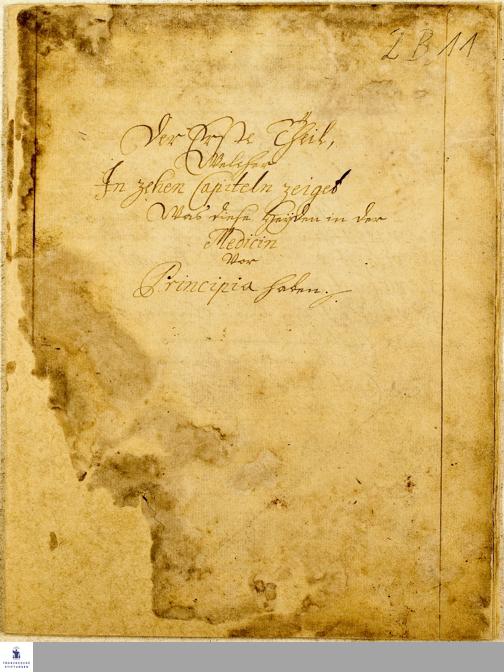 2 B 11
Der Erste Theil,
Welcher
In zehen Capiteln zeiget
Was diese Heyden in der
Medicin
Vor
Principia haben.
FRANCKESCHE
STIFTUNGEN